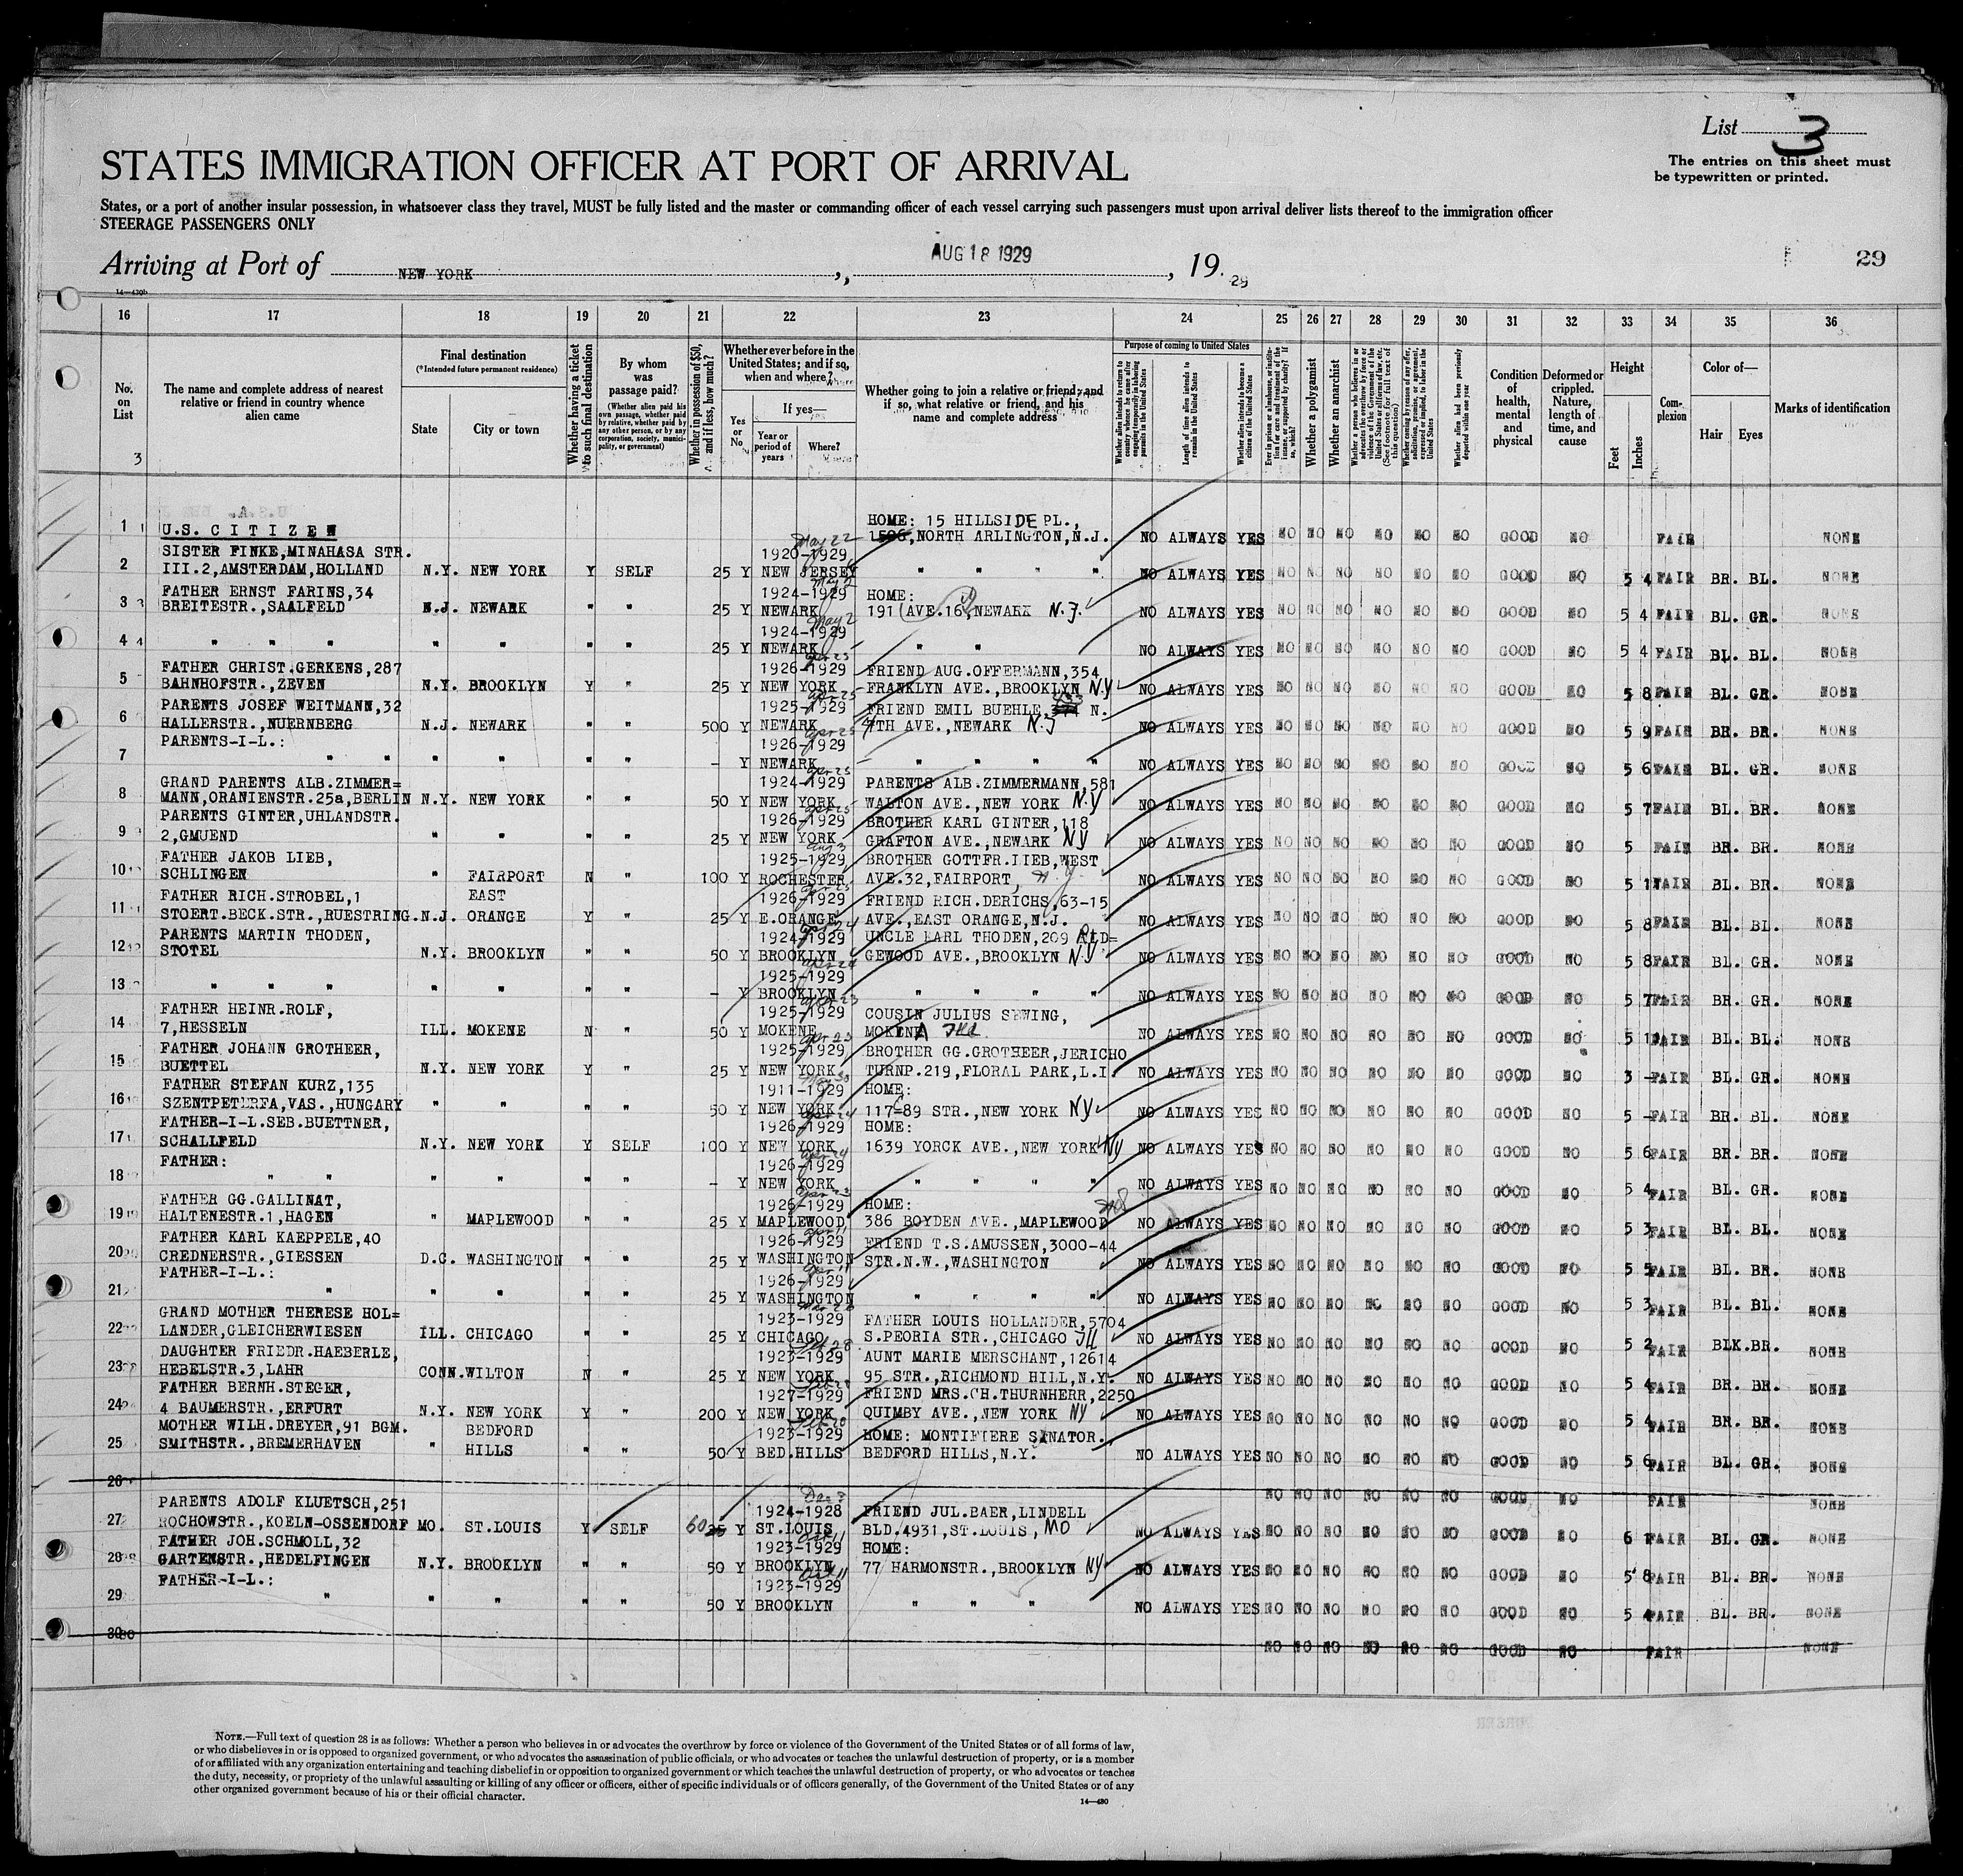 List 3
The entries on this sheet must
be typewritten or printed.
STATES IMMIGRATION OFFICER AT PORT OF ARRIVAL
States, or a port of another insular possession, in whatsoever class they travel, MUST be fully listed and the master or commanding officer of each vessel carrying such passengers must upon arrival deliver lists thereof to the immigration officer
STEERAGE PASSENGERS ONLY
Arriving at Port of NEW YORK, AUG 18 1929, 19 29
29
16 17 18 19 20 21 22 23 24 25 26 27 28 29 30 31 32 33 34 35 36
No. on List
3
The name and complete address of nearest relative or friend in country whence alien came
Final destination
(*Intended future permanent residence)
State
City or town
Whether having a ticket to such final destination
By whom was passage paid?
(Whether alien paid his own passage, whether paid by relative, whether paid by any other person, or by any corporation, society, municipality, or government)
Whether in possession of $50, and if less, how much?
Whether ever before in the United States; and if so, when and where?
Yes or No
If yes—
Year or period of years
Where?
Whether going to join a relative or friend; and if so, what relative or friend, and his name and complete address
Purpose of coming to United States
Whether alien intends to return to country whence he came after engaging temporarily in laboring pursuits in the United States
Length of time alien intends to remain in the United States
Whether alien intends to become a citizen of the United States
Whether a polygamist
Whether an anarchist
Whether alien had been previously deported within one year
Condition of health, mental and physical
Deformed or crippled. Nature, length of time, and cause
Height
Feet
Inches
Complexion
Color of—
Hair
Eyes
Marks of identification
HOME: 15 HILLSIDE PL.,
1 U.S. CITIZEN NORTH ARLINGTON, N.J. NO ALWAYS YES NO NO NO NO NO NO GOOD NO FAIR NONE
SISTER FINKE, MINAHASA STR. 1920-1929 May 22
2 III.2, AMSTERDAM, HOLLAND N.Y. NEW YORK Y SELF 25 Y NEW JERSEY " " " " NO ALWAYS YES NO NO NO NO NO NO GOOD NO 5 4 FAIR BR. BL. NONE
FATHER ERNST FARINS, 34 1924-1929 May 2 HOME:
3 BREITESTR., SAALFELD N.J. NEWARK " " 25 Y NEWARK 191 AVE.16, NEWARK N.J. NO ALWAYS YES NO NO NO NO NO NO GOOD NO 5 4 FAIR BL. GR. NONE
1924-1929 May 2
4 " " " " " " " 25 Y NEWARK " " NO ALWAYS YES NO NO NO NO NO NO GOOD NO 5 4 FAIR BL. BL. NONE
FATHER CHRIST. GERKENS, 287 1926-1929 Apr 25 FRIEND AUG. OFFERMANN, 354
5 BAHNHOFSTR., ZEVEN N.Y. BROOKLYN Y " 25 Y NEW YORK FRANKLYN AVE., BROOKLYN N.Y NO ALWAYS YES NO NO NO NO NO NO GOOD NO 5 8 FAIR BL. GR. NONE
PARENTS JOSEF WEITMANN, 32 1925-1929 Apr 25 FRIEND EMIL BUEHLE, N.
6 HALLERSTR., NUERNBERG N.J. NEWARK " " 500 Y NEWARK 4TH AVE., NEWARK N.J NO ALWAYS YES NO NO NO NO NO NO GOOD NO 5 9 FAIR BR. BR. NONE
PARENTS-I-L.: 1926-1929 Apr 25
7 " " " " " " - Y NEWARK " " " " NO ALWAYS YES NO NO NO NO NO NO GOOD NO 5 6 FAIR BL. GR. NONE
GRAND PARENTS ALB. ZIMMER= 1924-1929 Apr 25 PARENTS ALB. ZIMMERMANN, 581
8 MANN, ORANIENSTR. 25a, BERLIN N.Y. NEW YORK " " 50 Y NEW YORK WALTON AVE., NEW YORK N.Y NO ALWAYS YES NO NO NO NO NO NO GOOD NO 5 7 FAIR BL. BR. NONE
PARENTS GINTER, UHLANDSTR. 1926-1929 Apr 25 BROTHER KARL GINTER, 118
9 2, GMUEND " " " " 25 Y NEW YORK GRAFTON AVE., NEWARK NY NO ALWAYS YES NO NO NO NO NO NO GOOD NO 5 FAIR BR. BR. NONE
FATHER JAKOB LIEB, 1925-1929 Aug 3 BROTHER GOTTFR. LIEB, WEST
10 SCHLINGEN " FAIRPORT N " 100 Y ROCHESTER AVE.32, FAIRPORT, N.Y. NO ALWAYS YES NO NO NO NO NO NO GOOD NO FAIR BL. BR. NONE
FATHER RICH. STROBEL, 1 EAST 1926-1929 Apr 25 FRIEND RICH. DERICHS, 63-15
11 STOERT.BECK.STR., RUESTRING. N.J. ORANGE Y " 25 Y E.ORANGE AVE., EAST ORANGE, N.J. NO ALWAYS YES NO NO NO NO NO NO GOOD NO 5 8 FAIR BL. BL. NONE
PARENTS MARTIN THODEN, 1924-1929 Apr 24 UNCLE KARL THODEN, 209 RID=
12 STOTEL N.Y. BROOKLYN " " 50 Y BROOKLYN GEWOOD AVE., BROOKLYN N.Y. NO ALWAYS YES NO NO NO NO NO NO GOOD NO 5 8 FAIR BL. GR. NONE
1925-1929 Apr 24
13 " " " " " " " - Y BROOKLYN " " " " NO ALWAYS YES NO NO NO NO NO NO GOOD NO 5 7 FAIR BR. GR. NONE
FATHER HEINR. ROLF, 1925-1929 Apr 23 COUSIN JULIUS SEWING,
14 7, HESSELN ILL. MOKENE N " 50 Y MOKENE MOKENA Ill. NO ALWAYS YES NO NO NO NO NO NO GOOD NO FAIR BL. BL. NONE
FATHER JOHANN GROTHEER, 1925-1929 Apr 23 BROTHER GG. GROTHEER, JERICHO
15 BUETTEL N.Y. NEW YORK Y " 25 Y NEW YORK TURNP.219, FLORAL PARK, L.I. NO ALWAYS YES NO NO NO NO NO NO GOOD NO 3 - FAIR BL. GR. NONE
FATHER STEFAN KURZ, 135 1911-1929 May 30 HOME:
16 SZENTPETERFA, VAS., HUNGARY " " " " 50 Y NEW YORK 117-89 STR., NEW YORK NY NO ALWAYS YES NO NO NO NO NO NO GOOD NO 5 - FAIR BR. BL. NONE
FATHER-I-L. SEB. BUETTNER, 1926-1929 Apr 24 HOME:
17 SCHALLFELD N.Y. NEW YORK Y SELF 100 Y NEW YORK 1639 YORCK AVE., NEW YORK NY NO ALWAYS YES NO NO NO NO NO NO GOOD NO 5 6 FAIR BR. BR. NONE
FATHER: 1926-1929 Apr 24
18 " " " " " " - Y NEW YORK " " " " NO ALWAYS YES NO NO NO NO NO NO GOOD NO 5 4 FAIR BL. GR. NONE
FATHER GG. GALLINAT, 1926-1929 Apr 23 HOME:
19 HALTENESTR.1, HAGEN " MAPLEWOOD " " 25 Y MAPLEWOOD 386 BOYDEN AVE., MAPLEWOOD NO ALWAYS YES NO NO NO NO NO NO GOOD NO 5 3 FAIR BL. BL. NONE
FATHER KARL KAEPPELE, 40 1926-1929 Apr 11 FRIEND T.S. AMUSSEN, 3000-44
20 CREDNERSTR., GIESSEN D.C. WASHINGTON " " 25 Y WASHINGTON STR.N.W., WASHINGTON NO ALWAYS YES NO NO NO NO NO NO GOOD NO 5 5 FAIR BL. BR. NONE
FATHER-I-L.: 1926-1929 Apr 11
21 " " " " " 25 Y WASHINGTON " " " " NO ALWAYS YES NO NO NO NO NO NO GOOD NO 5 3 FAIR BL. BL. NONE
GRAND MOTHER THERESE HOL= 1923-1929 FATHER LOUIS HOLLANDER, 5704
22 LANDER, GLEICHERWIESEN ILL. CHICAGO " " 25 Y CHICAGO S.PEORIA STR., CHICAGO Ill NO ALWAYS YES NO NO NO NO NO NO GOOD NO 5 2 FAIR BLK. BR. NONE
DAUGHTER FRIEDR. HAEBERLE, 1923-1929 AUNT MARIE MERSCHANT, 12614
23 HEBELSTR.3, LAHR CONN. WILTON N " 25 Y NEW YORK 95 STR., RICHMOND HILL, N.Y. NO ALWAYS YES NO NO NO NO NO NO GOOD NO 5 4 FAIR BR. BR. NONE
FATHER BERNH. STEGER, 1927-1929 FRIEND MRS. CH. THURNHERR, 2250
24 4 BAUMERSTR., ERFURT N.Y. NEW YORK Y " 200 Y NEW YORK QUIMBY AVE., NEW YORK NY NO ALWAYS YES NO NO NO NO NO NO GOOD NO 5 4 FAIR BR. BR. NONE
MOTHER WILH. DREYER, 91 BGM. BEDFORD 1923-1929 HOME: MONTIFIERE SANATOR.,
25 SMITHSTR., BREMERHAVEN " HILLS " " 50 Y BED.HILLS BEDFORD HILLS, N.Y. NO ALWAYS YES NO NO NO NO NO NO GOOD NO 5 6 FAIR BL. GR. NONE
26 NO NO NO NO NO NO GOOD NO FAIR NONE
PARENTS ADOLF KLUETSCH, 251 1924-1928 FRIEND JUL. BAER, LINDELL
27 ROCHOWSTR., KOELN-OSSENDORF MO. ST.LOUIS Y SELF 60 Y ST.LOUIS BLD.4931, ST.LOUIS, MO NO ALWAYS YES NO NO NO NO NO NO GOOD NO 6 1 FAIR BL. GR. NONE
FATHER JOH. SCHMOLL, 32 1923-1929 Oct 11 HOME:
28 GARTENSTR., HEDELFINGEN N.Y. BROOKLYN " " 50 Y BROOKLYN 77 HARMONSTR., BROOKLYN NY NO ALWAYS YES NO NO NO NO NO NO GOOD NO 5 8 FAIR BL. BR. NONE
FATHER-I-L.: 1923-1929 Oct 11
29 " " " " " 50 Y BROOKLYN " " " NO ALWAYS YES NO NO NO NO NO NO GOOD NO 5 4 FAIR BL. BR. NONE
30 NO NO NO NO NO NO GOOD NO FAIR NONE
NOTE.—Full text of question 28 is as follows: Whether a person who believes in or advocates the overthrow by force or violence of the Government of the United States or of all forms of law,
or who disbelieves in or is opposed to organized government, or who advocates the assassination of public officials, or who advocates or teaches the unlawful destruction of property, or is a member
of or affiliated with any organization entertaining and teaching disbelief in or opposition to organized government or which teaches the unlawful destruction of property, or who advocates or teaches
the duty, necessity, or propriety of the unlawful assaulting or killing of any officer or officers, either of specific individuals or of officers generally, of the Government of the United States or of any
other organized government because of his or their official character.
14—430